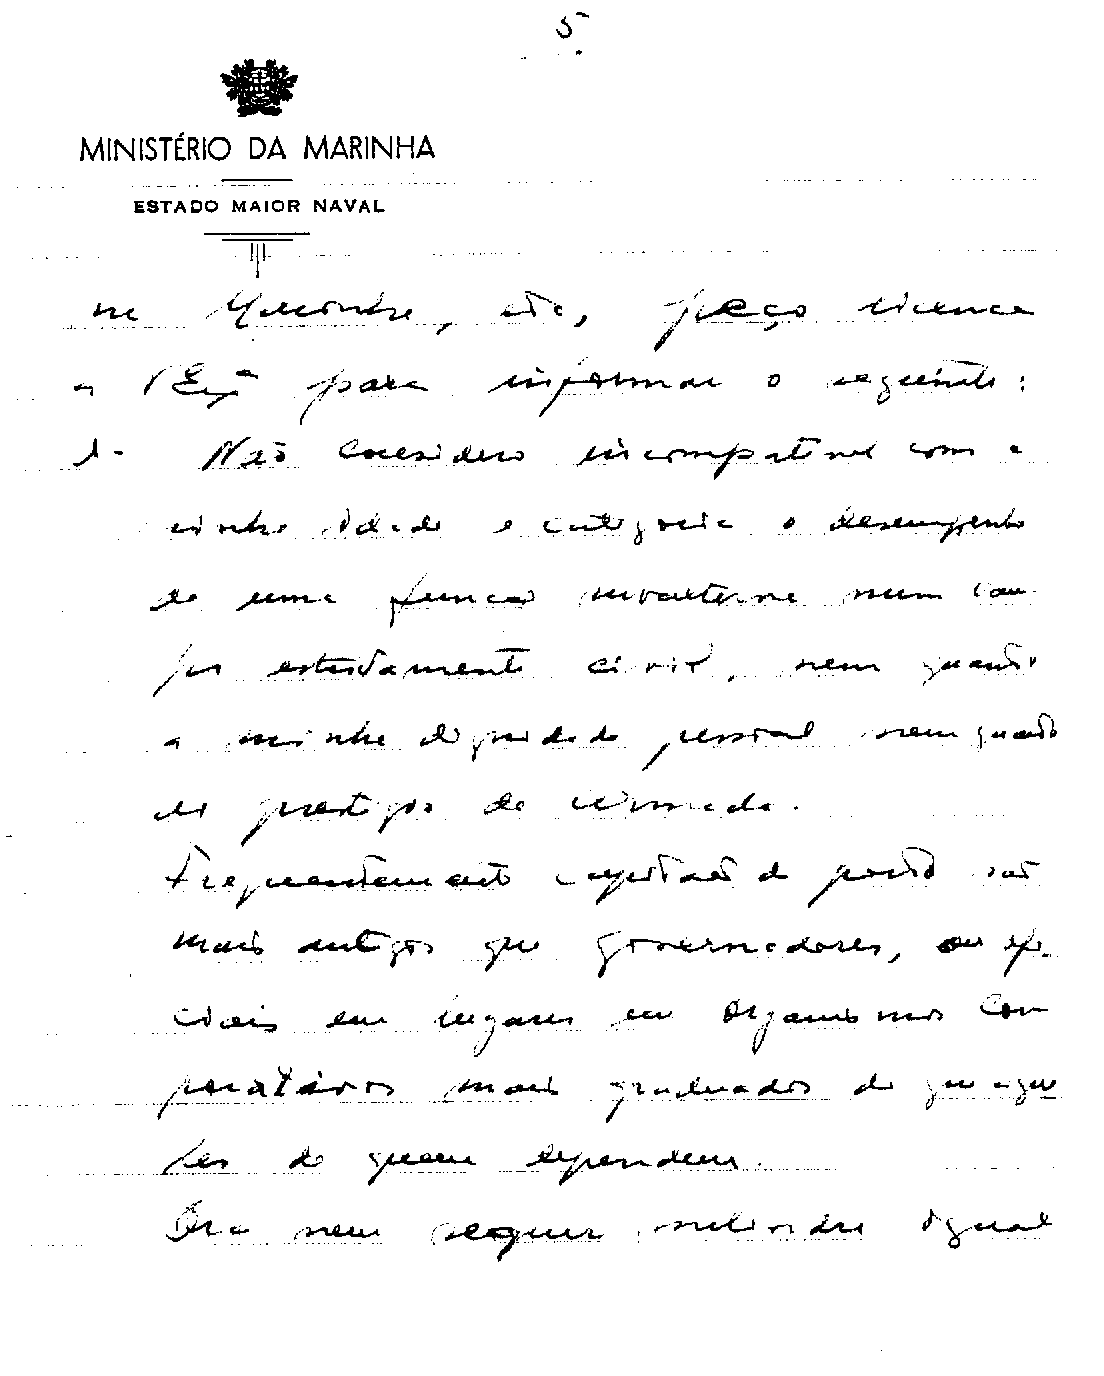 5.
MINISTÉRIO DA MARINHA
ESTADO MAIOR NAVAL
na Marinha, etc, peço licença
a VExª para informar o seguinte:
1- Não considero incompativel com a
minha idade e categoria o desempenho
de uma função subalterna num cam
po estritamente civil, nem quanto
a minha dignidade pessoal nem quanto
ao prestigio da Armada.
Frequentemente capitães de porto são
mais antigos que governadores, ou ofi
ciais em lugares em organismos cor
porativos mais graduados do que aque
les de quem dependem.
Ora nem sequer melindra igual